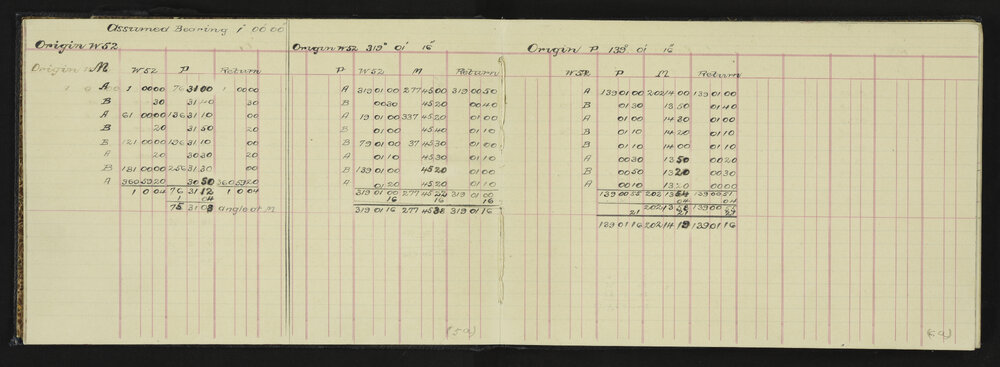 Assumed Bearing 1° 00 00
Origin W52
M W52 P Return
A 1 0000 76 3100 1 0000
B 30 3140 30
A 61 0000 136 3110 00
B 20 3150 20
B 121 0000 196 3110 00
A 20 3030 20
B 181 0000 256 3130 00
A 360 59 20 3050 360 59 20
1 0 04 76 31 12 1 0 04
1 04
75 31 08 angle at M
Origin W52 319° 01' 16"
P W52 M Return
A 319 01 00 277 45 00 319 00 50
B 00 30 45 20 00 40
A 19 01 00 337 45 20 01 00
B 01 00 45 40 01 10
B 79 01 00 37 45 30 01 00
A 01 10 45 30 01 10
B 139 01 00 45 20 01 00
A 01 20 45 20 01 10
319 01 00 277 45 22 319 01 00
16 16 16
319 01 16 277 45 38 319 01 16
(59)
Origin P 139° 01' 16"
W52 P M Return
A 139 01 00 202 14 00 139 01 00
B 01 30 13 50 01 40
A 01 00 14 30 01 00
B 01 10 14 20 01 10
B 01 00 14 10 01 00
A 00 30 13 50 00 20
B 00 50 13 20 00 30
A 00 10 00 00
139 00 55 202 13 54 139 00 51
04 04
202 13 58 139 00 55
21 21
139 01 16 202 14 19 139 01 16